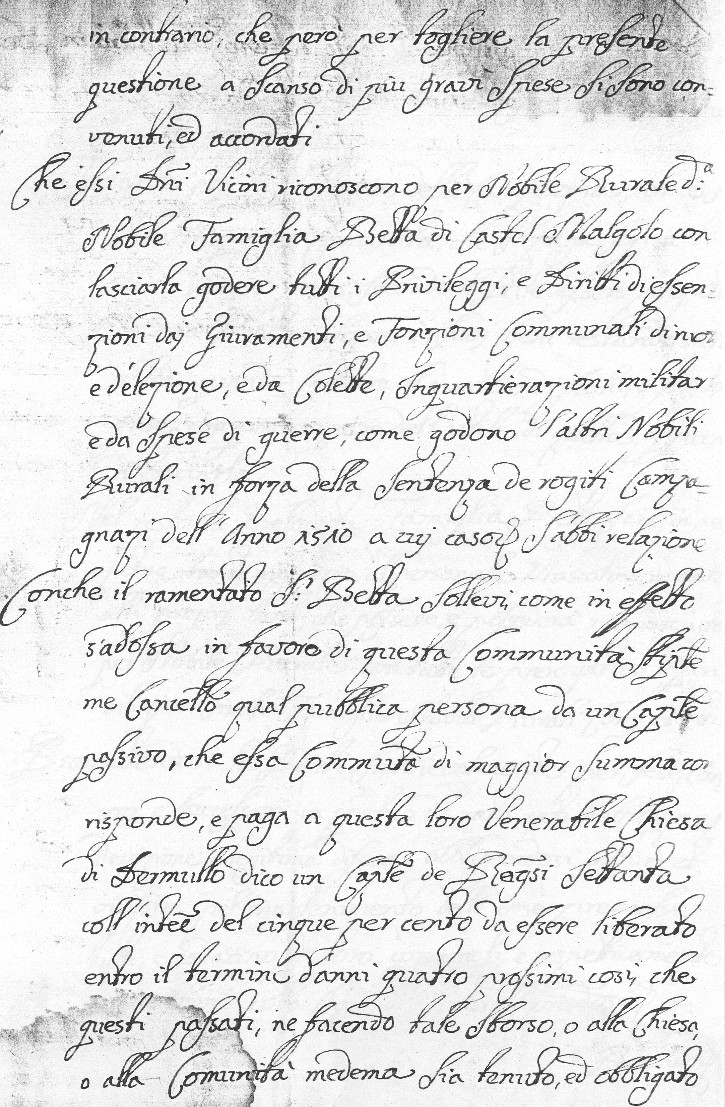 in contrario, che però per togliere la presente
questione a scanso di più gravi spese si sono con-
venuti, ed accordati
Che essi Dni Vicini riconoscono per Nobile Rurale d.ª
Nobile Famiglia Betta di Castel Malgolo con
lasciarla godere tutti i Privileggi, e Diritti di essen-
zioni daj Giuramenti, e Fonzioni Communali di
e d'elezione, e da Colette, Inquartierazioni militar
e da spese di guerre, come godono l'altri Nobili
Rurali in forza della sentenza de rogiti Campa-
gnazi dell'Anno 1510 a cuj s'abbi relazione
Conche il ramentato S.r Betta sollevi, come in effetto
s'adossa in favore di questa Communità, stipte
me Cancello qual pubblica persona da un Capitle
passivo, che essa Commutà di maggior summa cor
risponde, e paga a questa loro Venerabile Chiesa
di Dermullo dico un Capitle de Ragsi settanta
coll'inteè del cinque per cento da essere liberato
entro il termine d'anni quatro prossimi così, che
questi passati, ne facendo tale sborso, o alla Chiesa,
o alla Comunità medema sia tenuto, ed obbligato